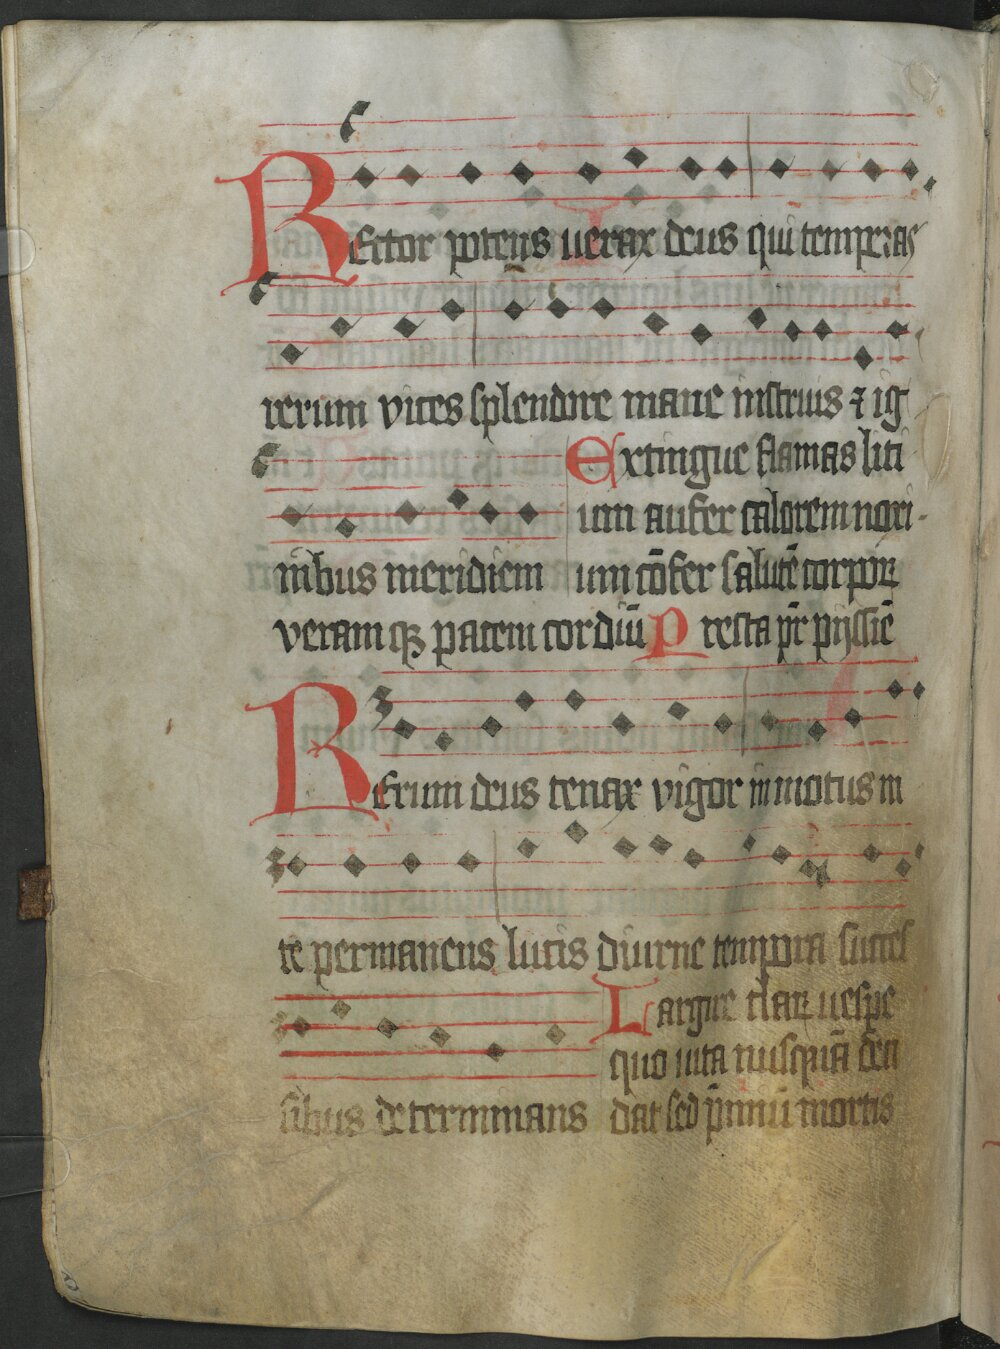 Rector potens uerax deus qui temperas
rerum vices splendore mane instruis ⁊ ig
nibus meridiem
Extingue flamas liti
um aufer calorem noxi-
um cōfer salutē corporꝝ
veramqꝫ pacem cordiū Presta pr̄ pijssiē
Rerum deus tenax vigor inmotus in
te permanens lucis diurne tempora succes
sibus determinans
Largire claꝝ uespe
quo uita nusquā deci
dat sed p̄miū mortis